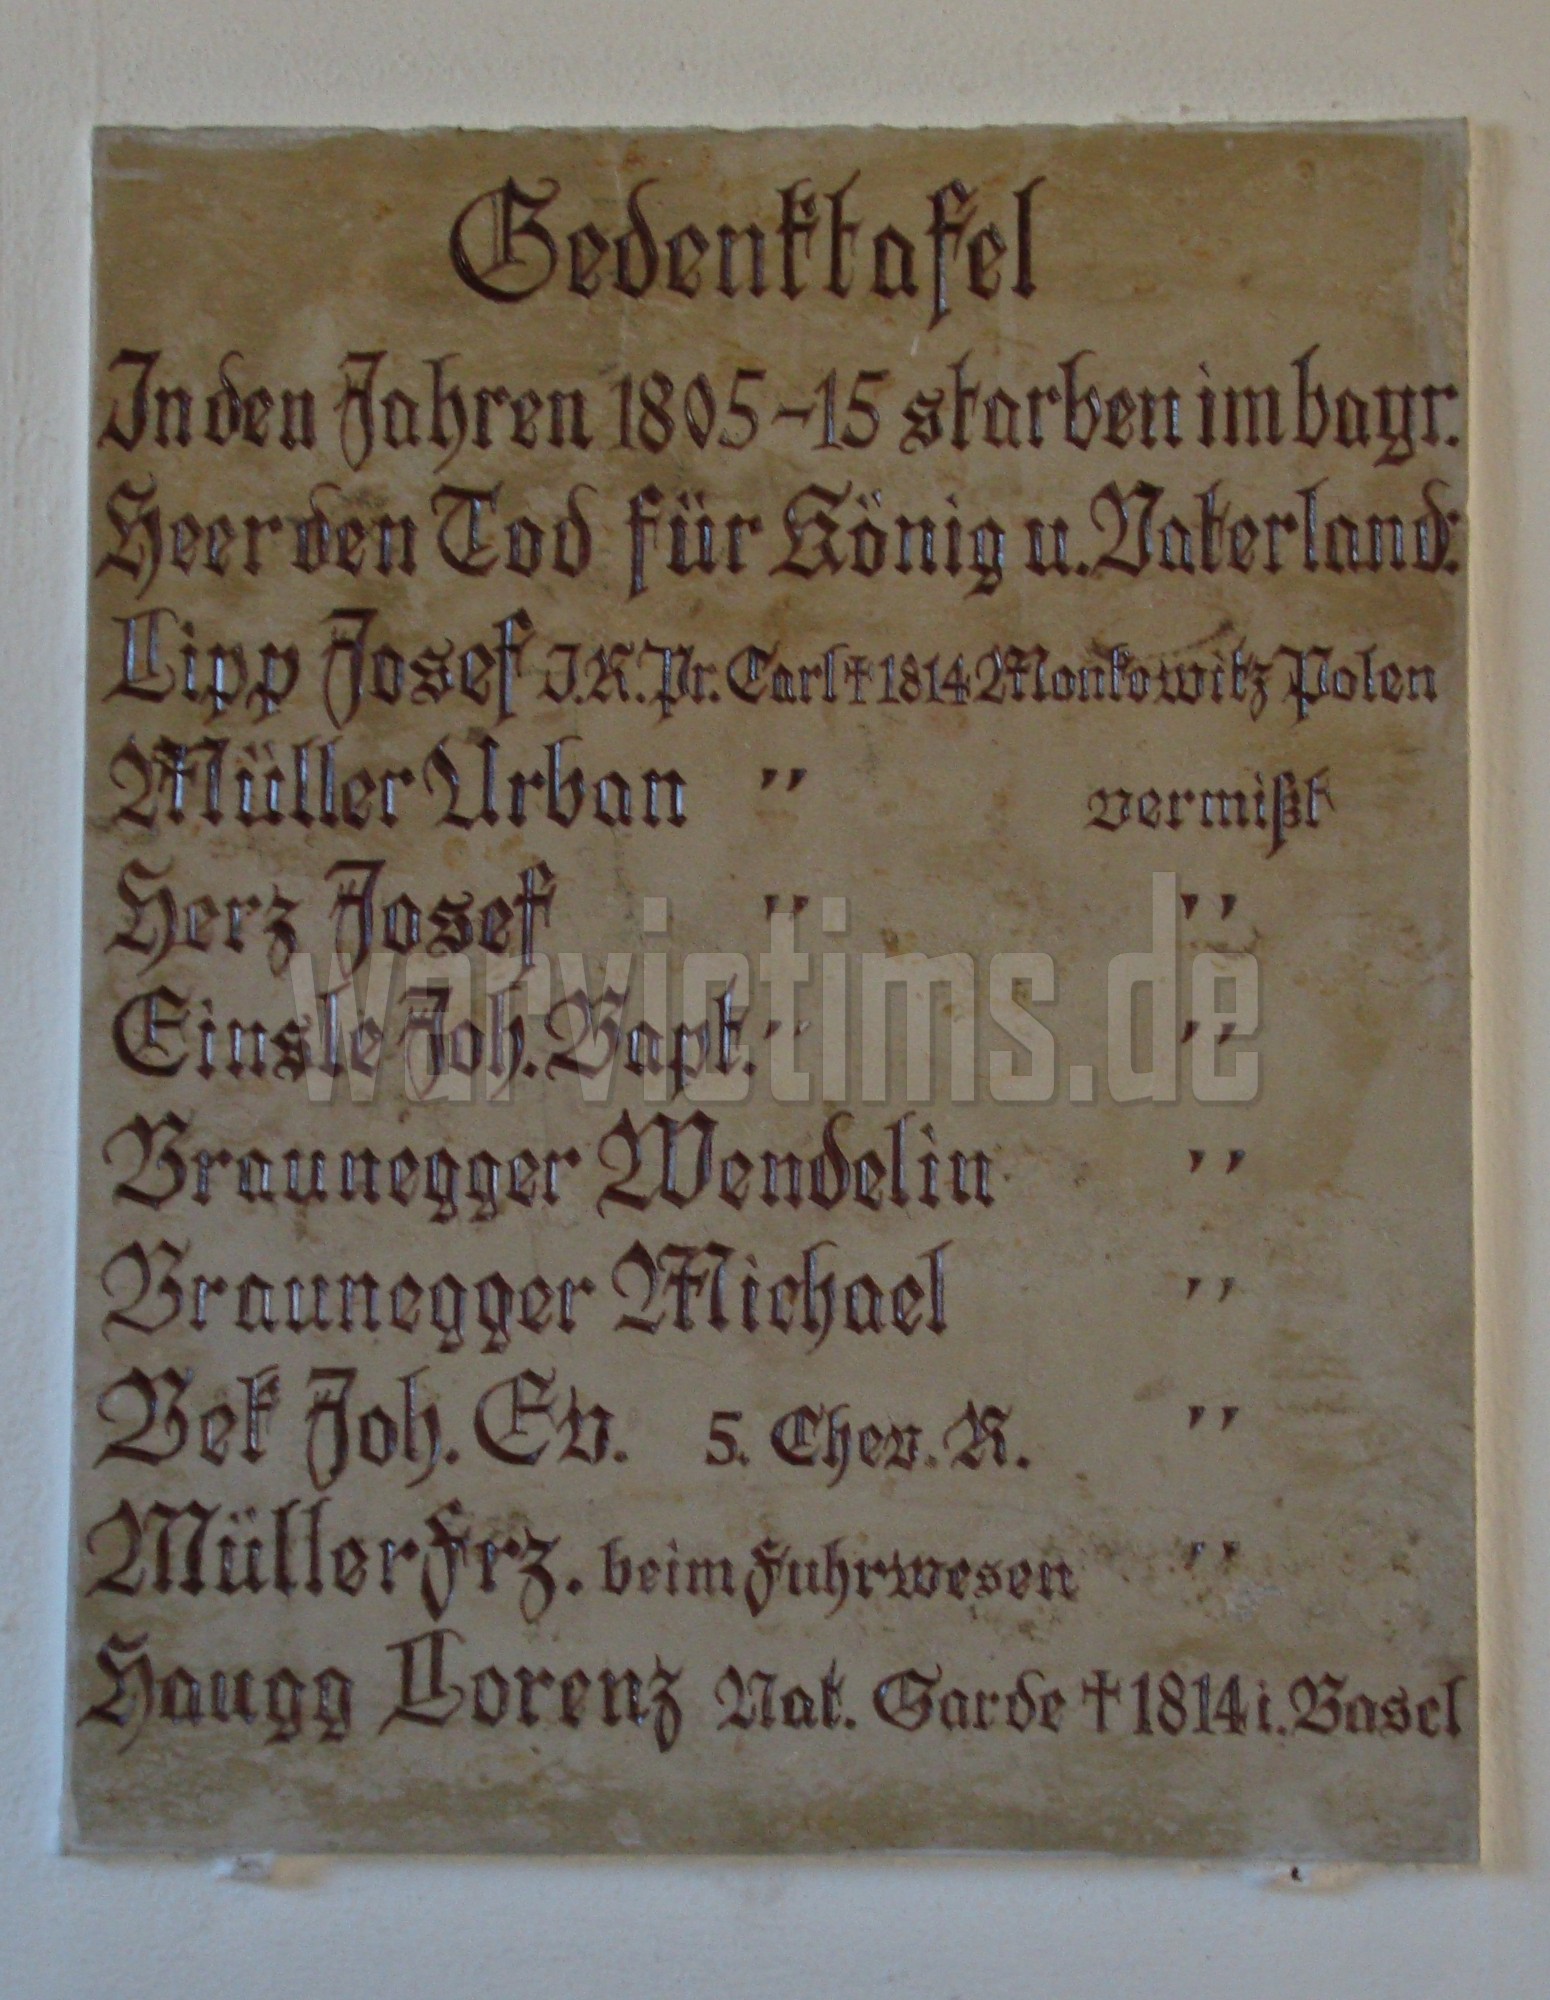 Gedenktafel
In den Jahren 1805-15 starben im bayr.
Heer den Tod für König u. Vaterland:
Lipp Josef I.R.Pr. Carl † 1814 Monkowitz Polen
Müller Urban " vermißt
Herz Josef " "
Einsle Joh. Bapt. " "
Braunegger Wendelin "
Braunegger Michael "
Bek Joh. Ev. 5. Chev. R. "
Müller Frz. beim Fuhrwesen "
Haugg Lorenz Nat. Garde † 1814 i. Basel
warvictims.de